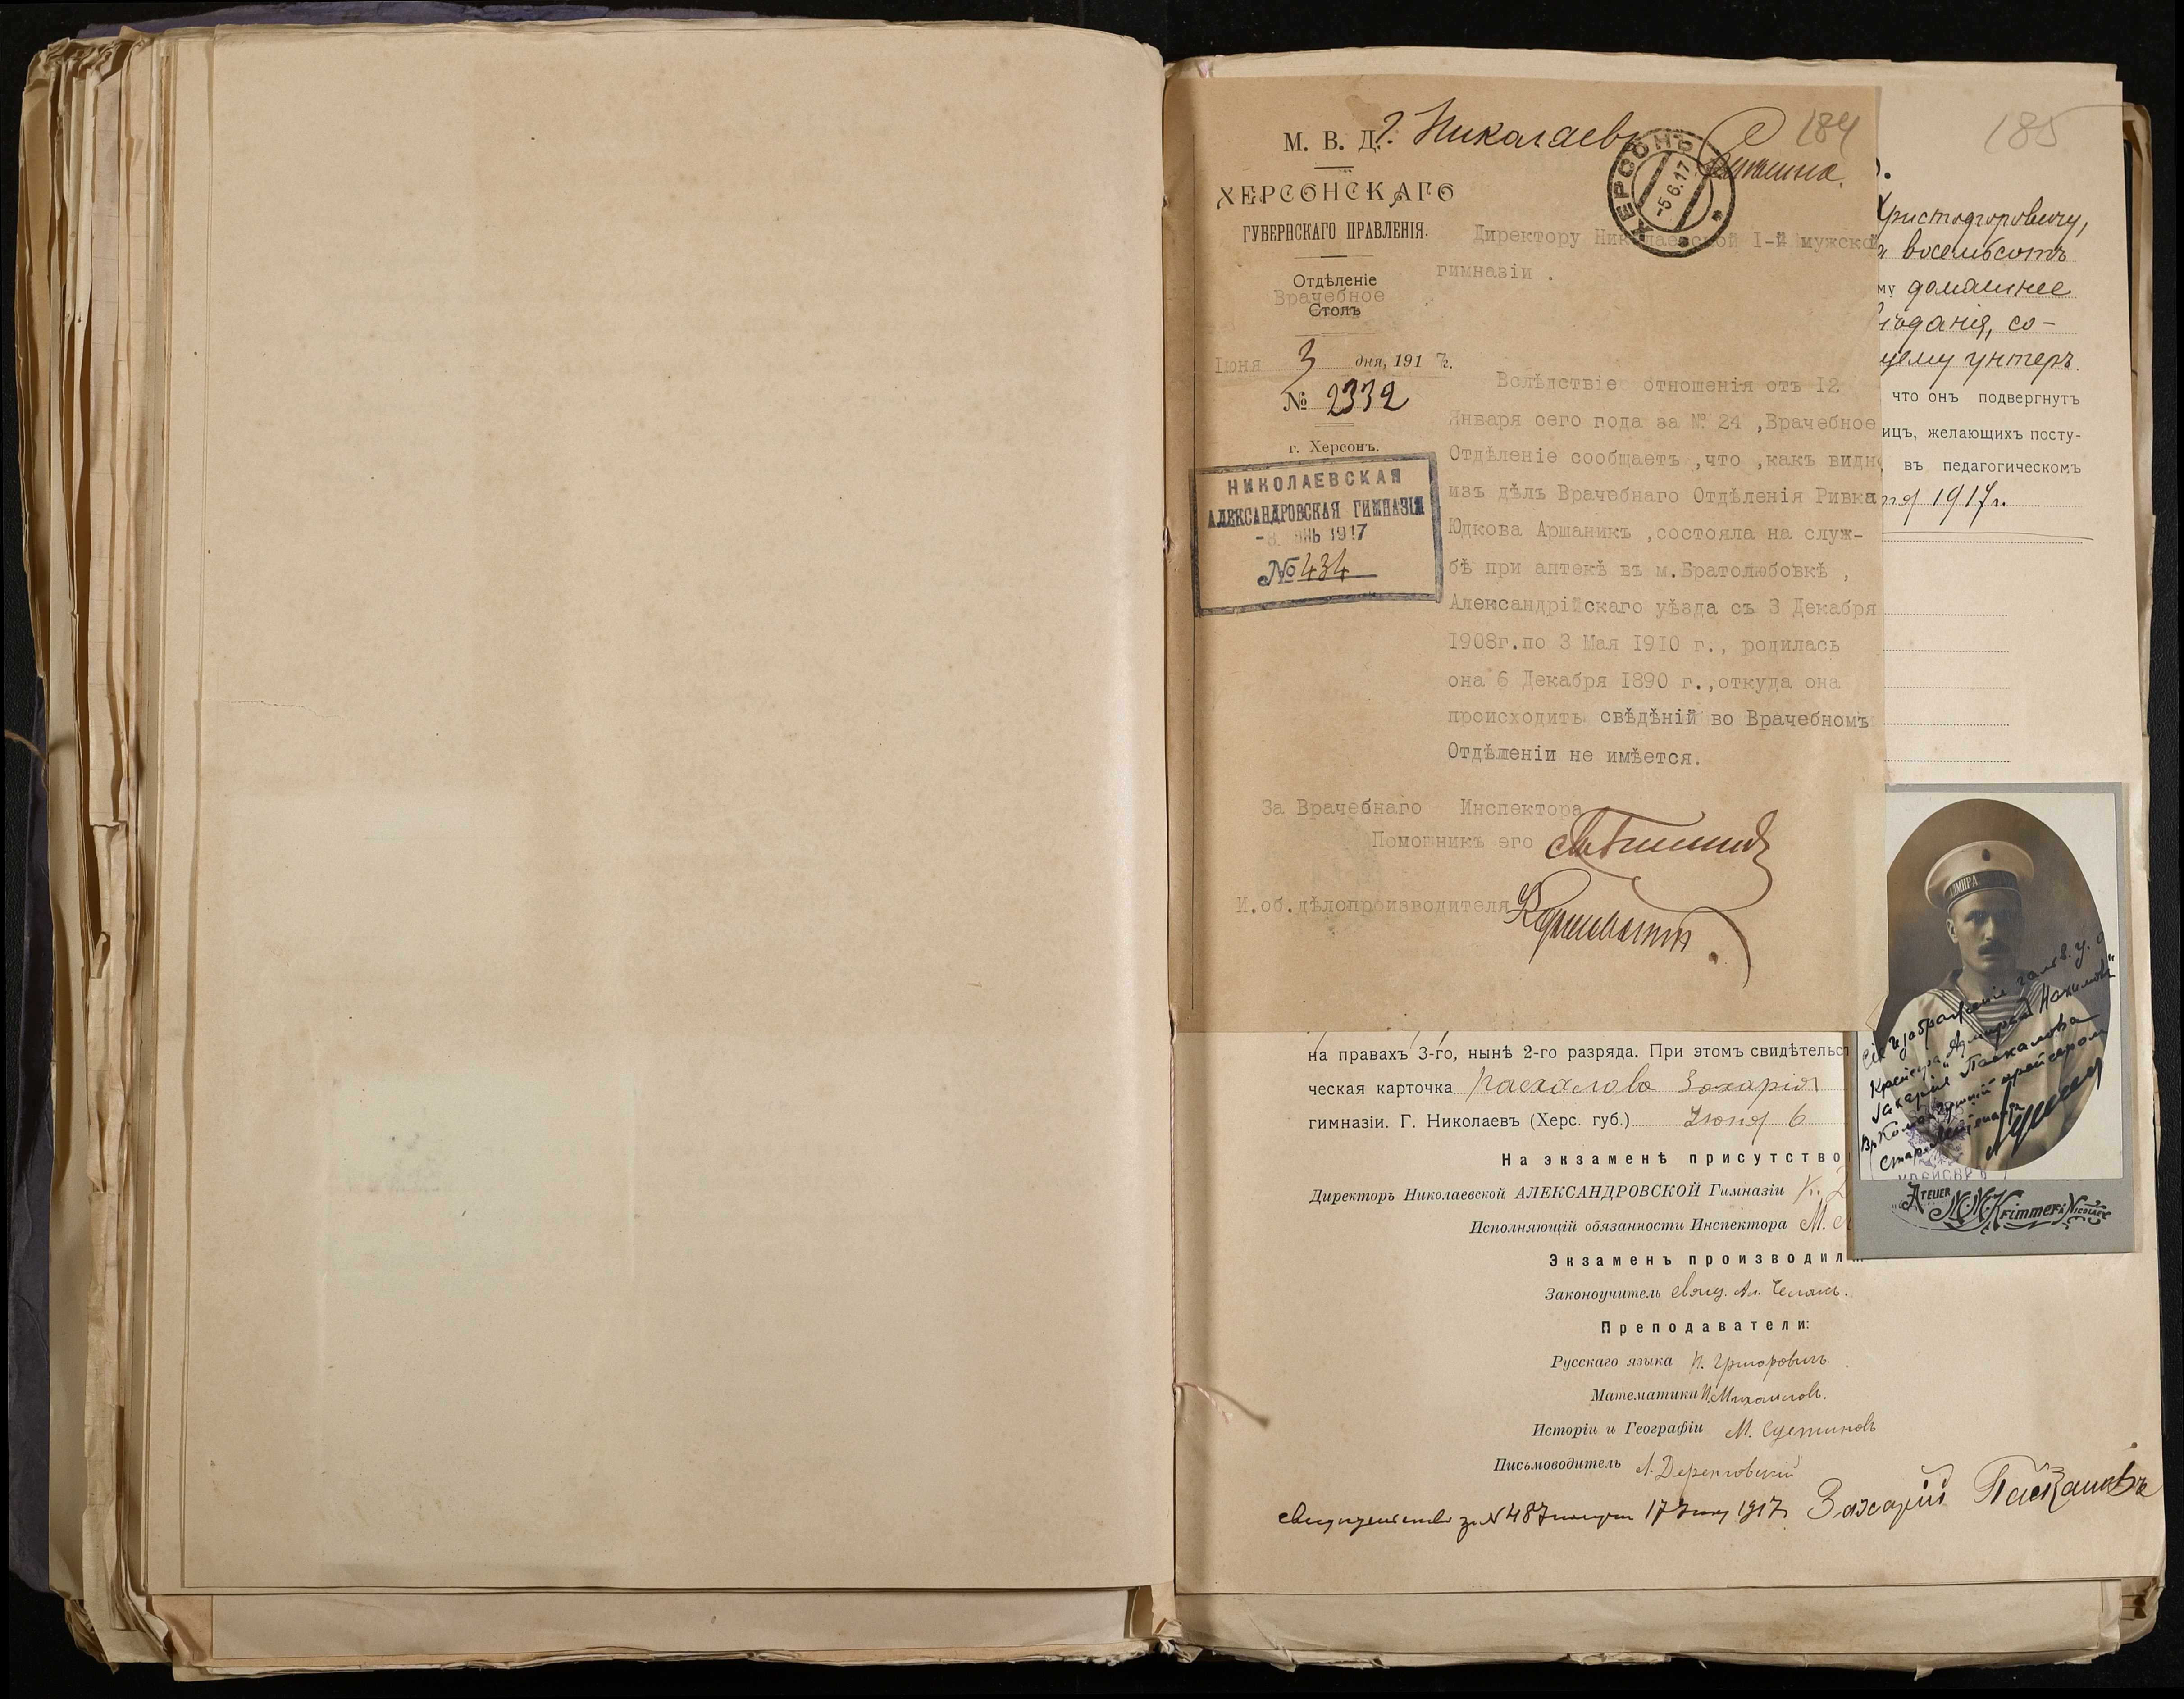 184
185
г. Николаевъ
М. В. Д.
ХЕРСОНСКАГО
ГУБЕРНСКАГО ПРАВЛЕНІЯ.
Отдѣленіе
Врачебное
Столъ
Іюня 3 дня, 1917 г.
№ 2332
г. Херсонъ.
ХЕРСОНЪ
-5.6.17
НИКОЛАЕВСКАЯ
АЛЕКСАНДРОВСКАЯ ГИМНАЗІЯ
-8 ІЮНЬ 1917
№ 434
Директору Николаевской I-й мужской
гимназіи .
Вслѣдствіе отношенія отъ I2
Января сего года за № 24 ,Врачебное
Отдѣленіе сообщаетъ ,что ,какъ видно
изъ дѣлъ Врачебнаго Отдѣленія Ривка
Юдкова Аршаникъ ,состояла на служ-
бѣ при аптекѣ въ м.Братолюбовкѣ ,
Александрійскаго уѣзда съ 3 Декабря
I908г.по 3 Мая I9I0 г., родилась
она 6 Декабря I890 г.,откуда она
происходитъ свѣдѣній во Врачебномъ
Отдѣленіи не имѣется.
За Врачебнаго Инспектора
Помощникъ его
И.об.дѣлопроизводителя
Христофоровичу,
восемьсотъ
му домашнее
со-
щему унтеръ
что онъ подвергнутъ
ицъ, желающихъ посту-
въ педагогическомъ
1917г.
на правахъ 3-го, нынѣ 2-го разряда. При этомъ свидѣтельст
ческая карточка Паскалова Захарія
гимназіи. Г. Николаевъ (Херс. губ.) Іюня 6
На экзаменѣ присутство
Директоръ Николаевской АЛЕКСАНДРОВСКОЙ Гимназіи К.
Исполняющій обязанности Инспектора М.
Экзаменъ производил
Законоучитель свящ. Ал.
Преподаватели:
Русскаго языка П. Григоровичъ.
Математики П. Михайловъ.
Исторіи и Географіи М. Сустиновъ
Письмоводитель
Свидѣтельство за № 487 получилъ 17 Іюня 1917 г. Захарій Паскаловъ
ДМИРА
Сіе изображеніе гальв. у. о.
Крейсера „Адмиралъ Нахимовъ"
Захарія Паскалова
Вр. Командующій крейсеромъ
Старш. Лейтенантъ
КРЕЙСЕРЪ
ATELIER
M. M. Krimmer. NICOLAEV